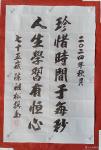 二〇二四年秋月
珍惜時間于每秒
人生學習有恒心
七十五歲陳祖松撰书